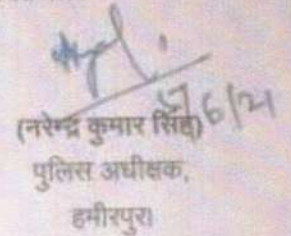 6/21
(नरेन्द्र कुमार सिंह)
पुलिस अधीक्षक,
हमीरपुर।